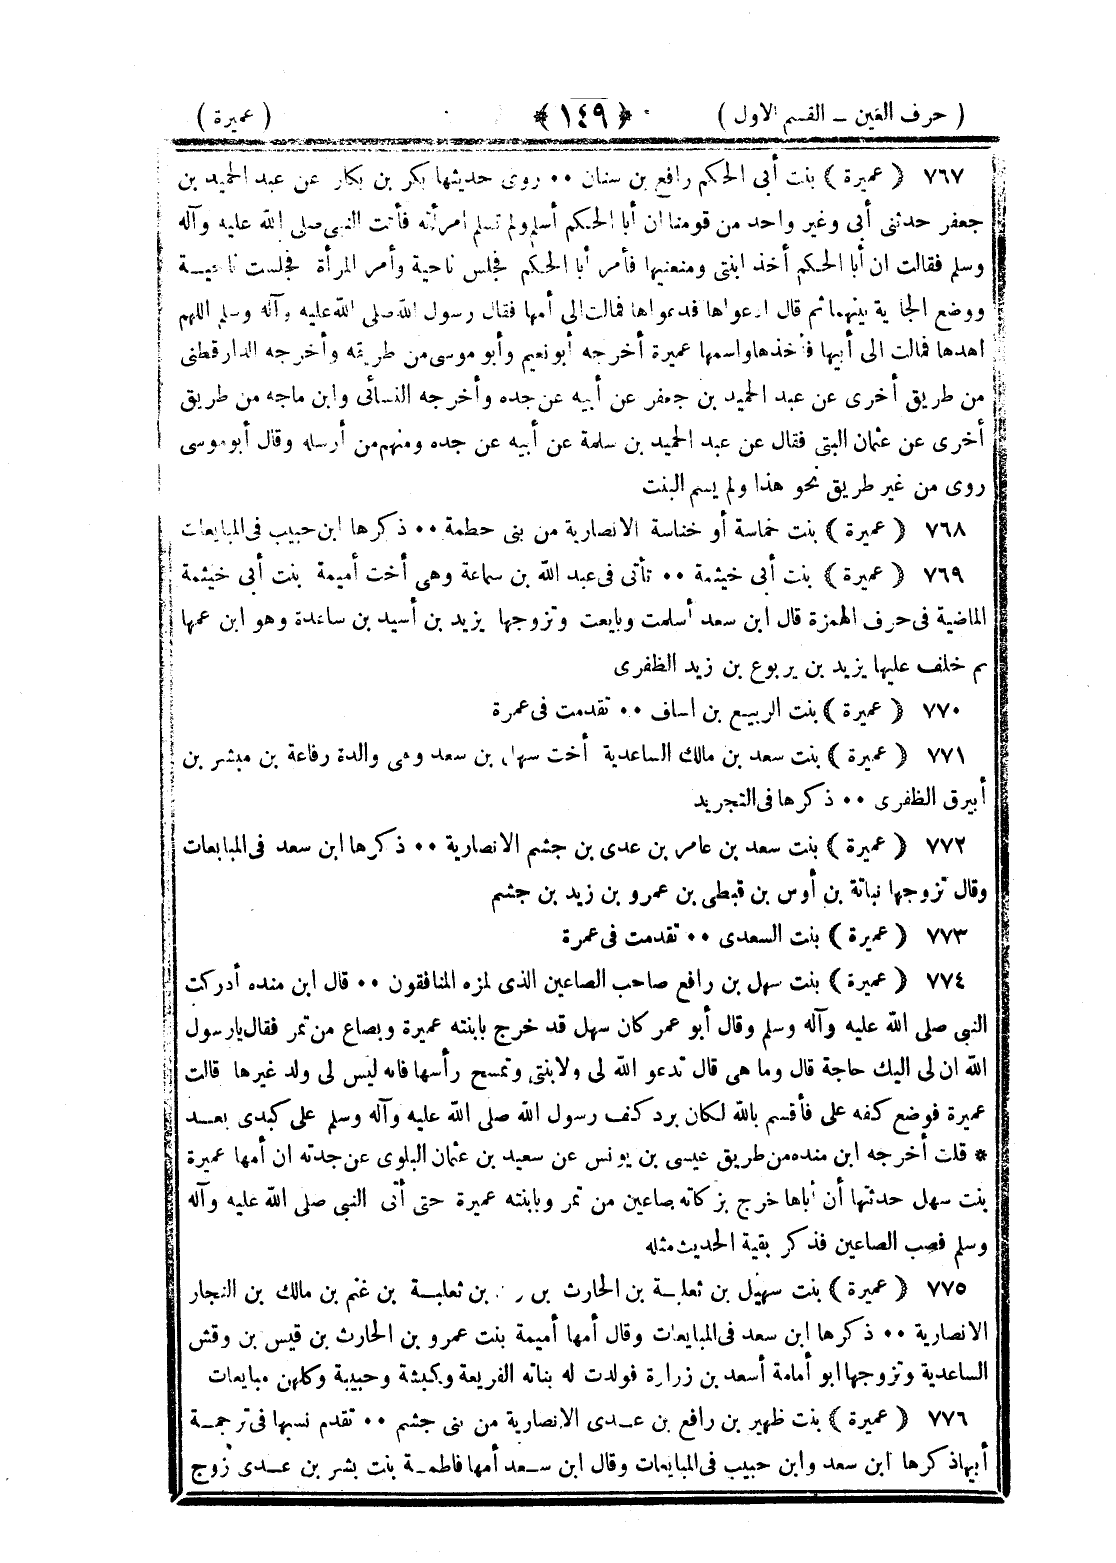 ( حرف العين ــ القسم الاول ) ﴿ ١٤٩ ﴾ ( عميرة )
٧٦٧ ﴿ عميرة ﴾ بنت أبى الحكم رافع بن سنان ٠٠ روى حديثها بكر بن بكار عن عبد الحميد بن
جعفر حدثنى أبى وغير واحد من قومنا ان أبا الحكم أسلم ولم تسلم امرأته فأتت النبى صلى الله عليه وآله
وسلم فقالت ان أبا الحكم أخذ ابنتى ومنعنيها فأمر أبا الحكم فجلس ناحية وأمر المرأة فجلست ناحيــة
ووضع الجارية بينهما ثم قال ادعواها فدعواها فمالت الى أمها فقال رسول الله صلى الله عليه وآله وسلم اللهم
اهدها فمالت الى أبيها فأخذها واسمها عميرة أخرجه أبو نعيم وأبو موسى من طريقه وأخرجه الدارقطنى
من طريق أخرى عن عبد الحميد بن جعفر عن أبيه عن جده وأخرجه النسائى وابن ماجه من طريق
أخرى عن عثمان البتى فقال عن عبد الحميد بن سلمة عن أبيه عن جده ومنهم من أرسله وقال أبو موسى
روى من غير طريق نحو هذا ولم يسم البنت
٧٦٨ ﴿ عميرة ﴾ بنت خماسة أو خناسة الانصارية من بنى حطمة ٠٠ ذكرها ابن حبيب فى المبايعات
٧٦٩ ﴿ عميرة ﴾ بنت أبى خيثمة ٠٠ تأتى فى عبد الله بن سماعة وهى أخت أميمة بنت أبى خيثمة
الماضية فى حرف الهمزة قال ابن سعد أسلمت وبايعت وتزوجها يزيد بن أسيد بن ساعدة وهو ابن عمها
ثم خلف عليها يزيد بن يربوع بن زيد الظفرى
٧٧٠ ﴿ عميرة ﴾ بنت الربيع بن اساف ٠٠ تقدمت فى عمرة
٧٧١ ﴿ عميرة ﴾ بنت سعد بن مالك الساعدية أخت سهل بن سعد وهى والدة رفاعة بن مبشر بن
أبيرق الظفرى ٠٠ ذكرها فى التجريد
٧٧٢ ﴿ عميرة ﴾ بنت سعد بن عامر بن عدى بن جشم الانصارية ٠٠ ذكرها ابن سعد فى المبايعات
وقال تزوجها نباتة بن أوس بن قبطى بن عمرو بن زيد بن جشم
٧٧٣ ﴿ عميرة ﴾ بنت السعدى ٠٠ تقدمت فى عمرة
٧٧٤ ﴿ عميرة ﴾ بنت سهل بن رافع صاحب الصاعين الذى لمزه المنافقون ٠٠ قال ابن منده أدركت
النبى صلى الله عليه وآله وسلم وقال أبو عمر كان سهل قد خرج بابنته عميرة وبصاع من تمر فقال يارسول
الله ان لى اليك حاجة قال وما هى قال تدعو الله لى ولابنتى وتمسح رأسها فانه ليس لى ولد غيرها قالت
عميرة فوضع كفه على فأقسم بالله لكان برد كف رسول الله صلى الله عليه وآله وسلم على كبدى بعــد
* قلت أخرجه ابن منده من طريق عيسى بن يونس عن سعيد بن عثمان البلوى عن جدته ان أمها عميرة
بنت سهل حدثتها أن أباها خرج بزكاته بصاعين من تمر وبابنته عميرة حتى أتى النبى صلى الله عليه وآله
وسلم فصب الصاعين فذكر بقية الحديث مثله
٧٧٥ ﴿ عميرة ﴾ بنت سهيل بن ثعلبــة بن الحارث بن بن ثعلبــة بن غنم بن مالك بن النجار
الانصارية ٠٠ ذكرها ابن سعد فى المبايعات وقال أمها أميمة بنت عمرو بن الحارث بن قيس بن وقش
الساعدية وتزوجها ابو أمامة أسعد بن زرارة فولدت له بناته الفريعة وكبشة وحبيبة وكلهن مبايعات
٧٧٦ ﴿ عميرة ﴾ بنت ظهير بن رافع بن عــدى الانصارية من بنى جشم ٠٠ تقدم نسبها فى ترجمــة
أبيها ذكرها ابن سعد وابن حبيب فى المبايعات وقال ابن ســعد أمها فاطمــة بنت بشر بن عــدى زوج